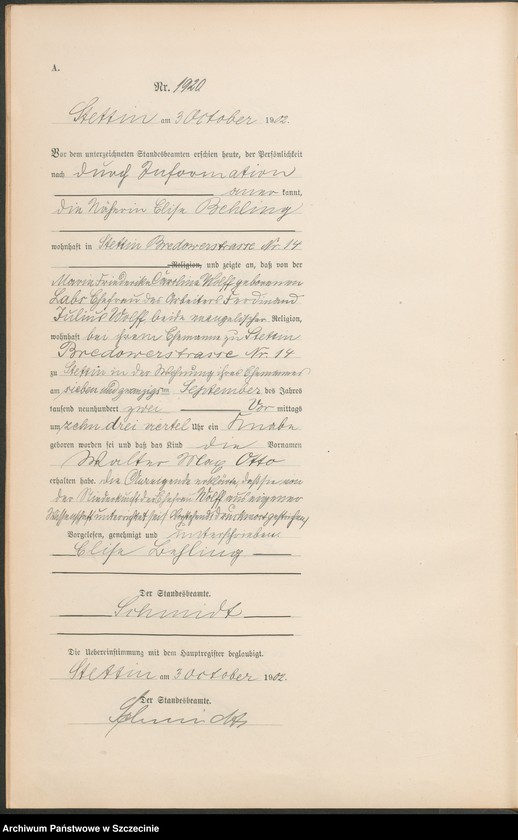 A.
Nr. 1920
Stettin am 3 October 1902.
Vor dem unterzeichneten Standesbeamten erschien heute, der Persönlichkeit
nach durch Information
aner kannt,
die Näherin Elise Behling
wohnhaft in Stettin Bredowerstrasse Nr. 14
Religion, und zeigte an, daß von der
Marie Friederike Caroline Wolff geborenen
Labs Ehefrau des Arbeiters Ferdinand
Julius Wolff beide evangelischer Religion,
wohnhaft bei ihrem Ehemanne zu Stettin
Bredowerstrasse Nr. 14
zu Stettin in der Wohnung ihres Ehemannes
am sieben und zwanzigsten September des Jahres
tausend neunhundert zwei Vor mittags
um zehn drei viertel Uhr ein Knabe
geboren worden sei und daß das Kind die Vornamen
Walter Max Otto
erhalten habe. die Anzeigende erklärte, daß sie von
der Niederkunft der Ehefrau Wolff aus eigener
Wissenschaft unterrichtet sei. Vorstehend Druckwort gestrichen
Vorgelesen, genehmigt und unterschrieben
Elise Behling
Der Standesbeamte.
Schmidt
Die Uebereinstimmung mit dem Hauptregister beglaubigt.
Stettin am 3 October 1902.
Der Standesbeamte.
Schmidt
Archiwum Państwowe w Szczecinie